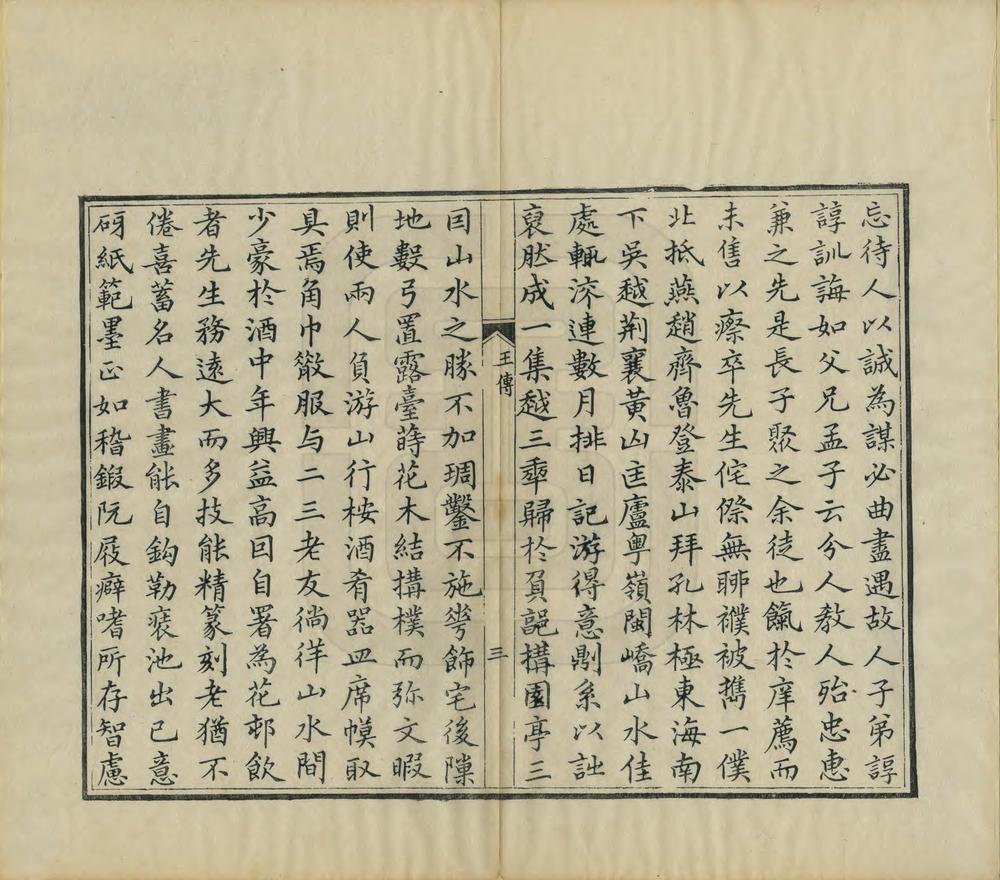 忘待人以誠為謀必曲盡遇故人子弟諄
諄訓誨如父兄孟子云分人教人殆忠恵
兼之先是長子聚之余徒也餼於庠薦而
未售以瘵卒先生侘傺無聊襆被擕一僕
北抵燕趙齊魯登泰山拜孔林極東海南
下吳越荆襄黃山匡廬粵嶺閩嶠山水佳
處輒涉連數月排日記游得意則系以詩
裒肰成一集越三秊歸於葺構園亭三
囙山水之勝不加琱鑿不施雩飾宅後隟
地數弓置露臺蒔花木結搆樸而弥文暇
則使兩人負游山行桉酒肴器皿席幙取
具焉角巾𢿱服与二三老友徜徉山水間
少豪於酒中年興益高囙自署為花邨飲
者先生務遠大而多技能精篆刻老猶不
倦喜蓄名人書畫能自鈎勒裱池出己意
砑紙範墨正如嵇鍛阮屐癖嗜所存智慮
王傳
三